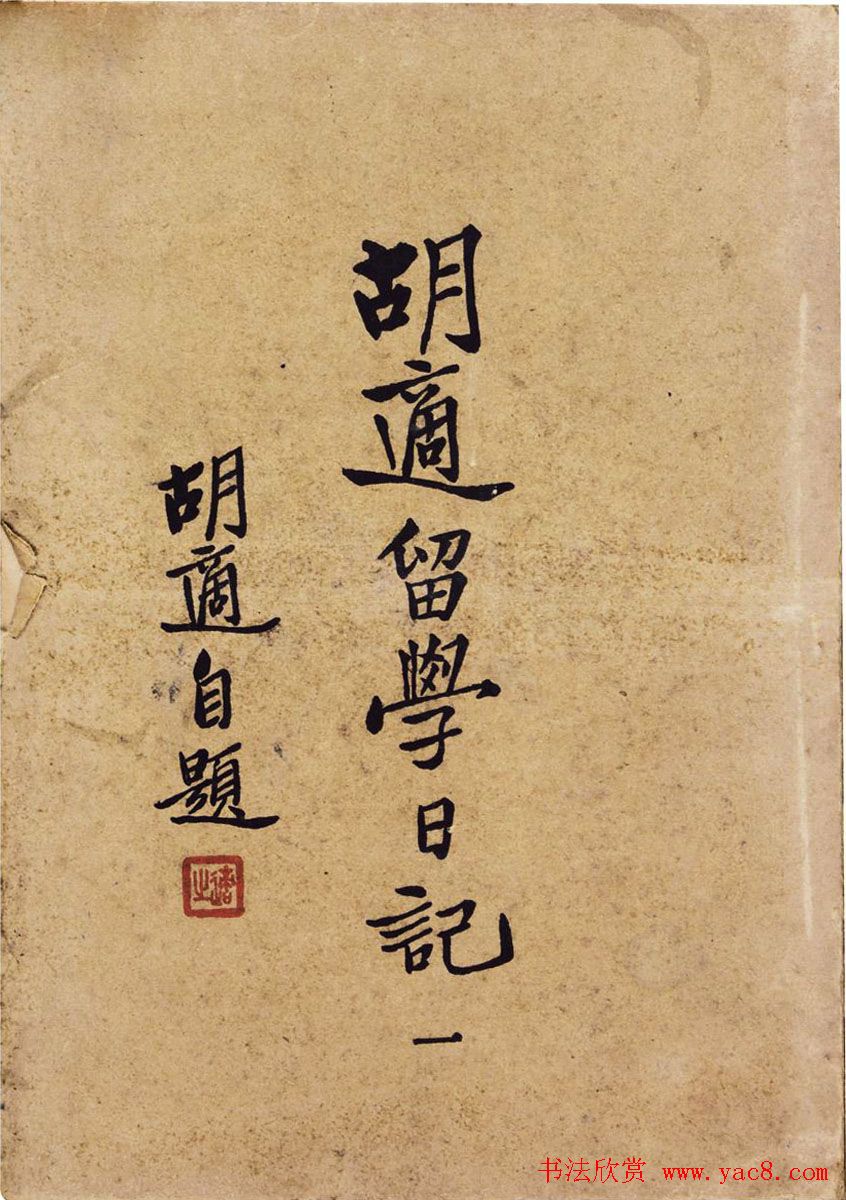 胡適留學日記 一
胡適自題
適之
书法欣赏 www.yac8.com